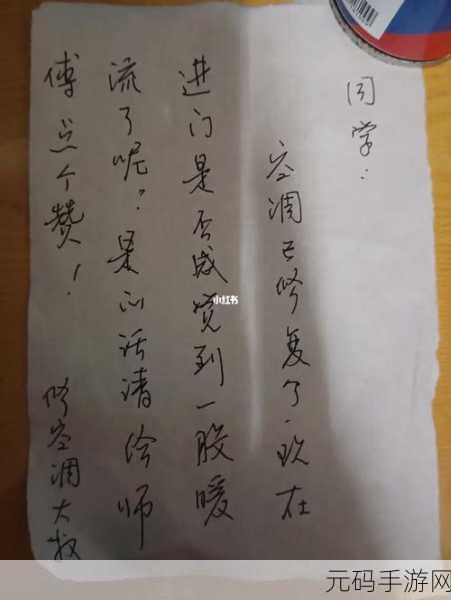 同学：
空调已修复了.现在
进门是否感觉到一股暖
流了呢？是的话请给师
傅点个赞！
修空调大叔
小红书
元码手游网